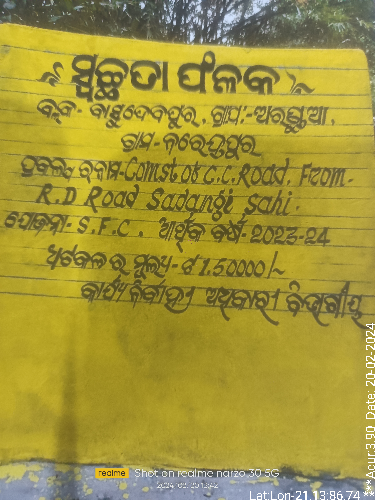 ସ୍ୱଚ୍ଛତା ଫଳକ
ବ୍ଲକ- ବାସୁଦେବପୁର, ଗ୍ରାପଂ:-ଅରସ୍ତୁଆ,
ଗ୍ରାମ- ନରେନ୍ଦ୍ରପୁର
ପ୍ରକଳ୍ପର ନାମ-Const of C.C. Road, From-
R.D Road Sadangi Sahi.
ଯୋଜନା- S.F.C. ଆର୍ଥିକ ବର୍ଷ-2023-24
ଅଟକଳର ମୂଲ୍ୟ-₹ 1.50000/~
କାର୍ଯ୍ୟ ନିର୍ବାହୀ ଅଧିକାରୀ ବିଭାଗୀୟ
realme Shot on realme narzo 30 5G
Lat:Lon-21.13:86.74 *** Acur:3.90 Date: 20-02-2024